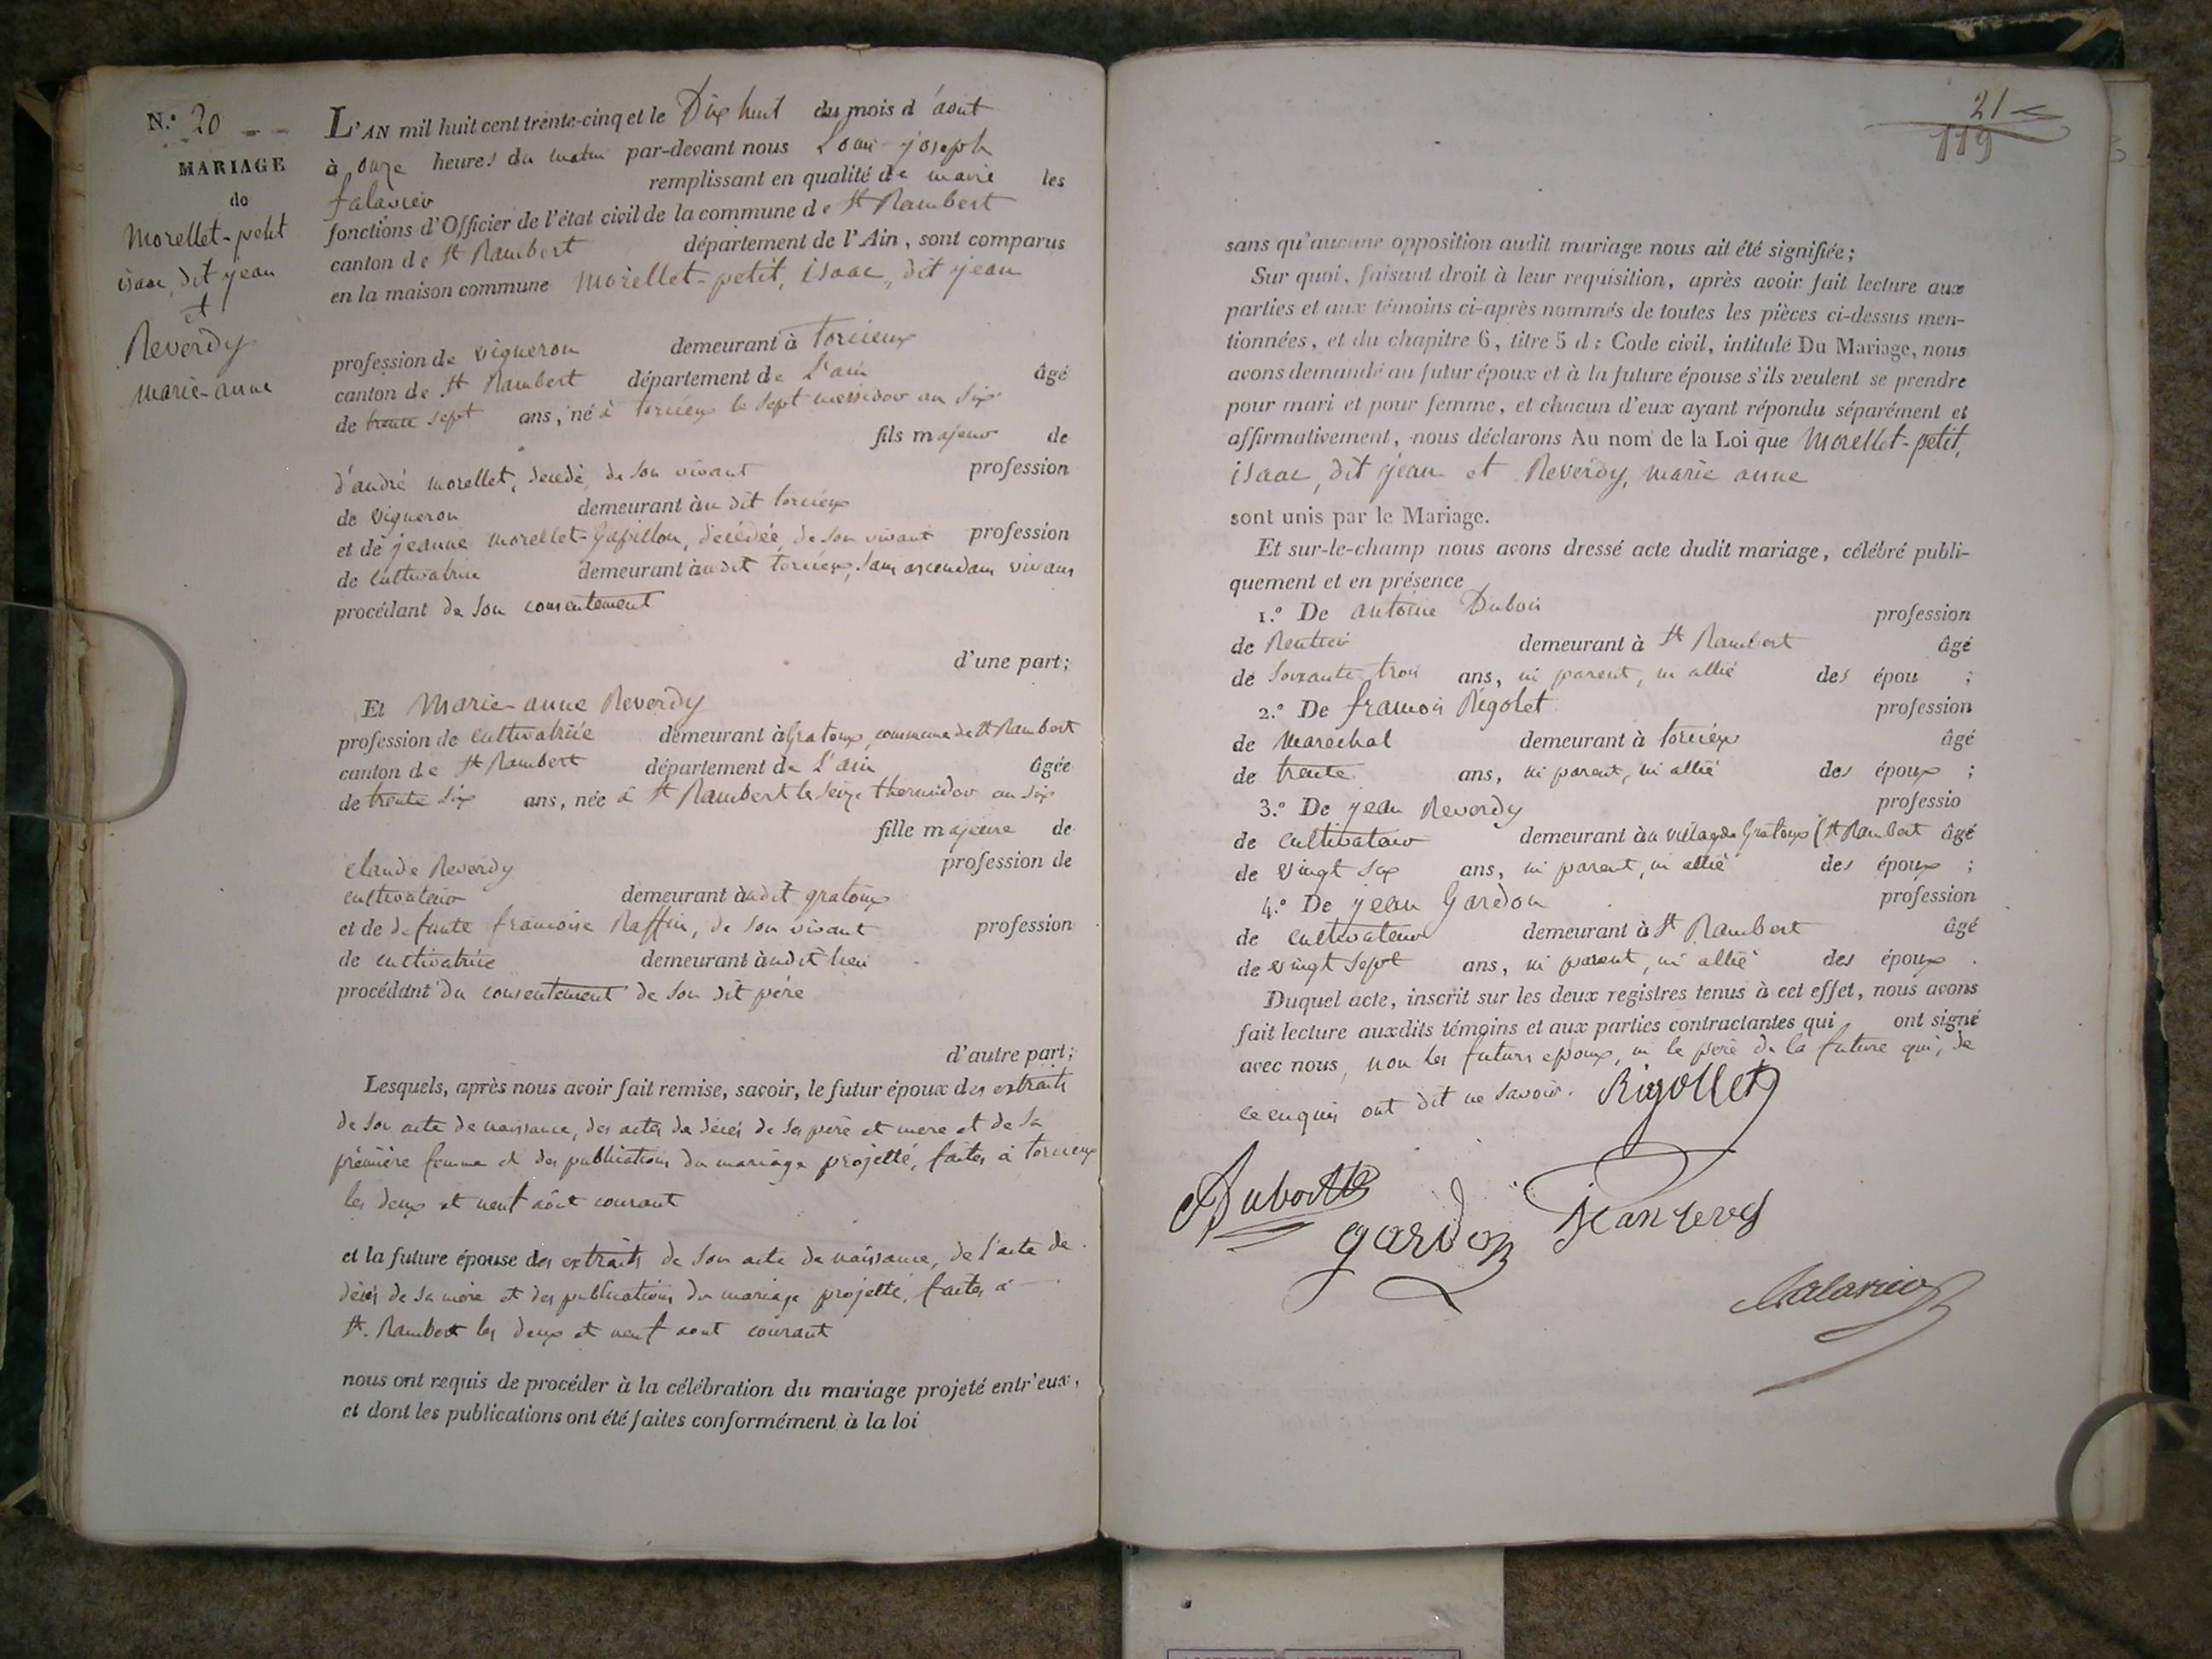 N.° 20
MARIAGE
de
Morellet-petit
isaac, dit jean
et
Reverdy
marie-anne
L'AN mil huit cent trente-cinq et le Dix huit du mois d'aout
à onze heures du matin par-devant nous Louis-joseph
falavier remplissant en qualité de maire les
fonctions d'Officier de l'état civil de la commune de St Rambert
canton de St Rambert département de l'Ain, sont comparus
en la maison commune Morellet-petit, isaac, dit jean
profession de vigneron demeurant à torcieux
canton de St Rambert département de L'ain âgé
de trente sept ans, né à torcieux le sept messidor an six
fils majeur de
d'andré morellet, décédé, de son vivant profession
de vigneron demeurant à u dit torcieux
et de jeanne morellet-Gapillon, décédée, de son vivant profession
de cultivatrice demeurant à udit torcieux, sans ascendans vivans
procédant de son consentement
d'une part;
Et Marie-anne Reverdy
profession de cultivatrice demeurant à Gratoux, commune de St Rambert
canton de St Rambert département de L'ain âgée
de trente six ans, née à St Rambert le seize thermidor an six
fille majeure de
claude Reverdy profession de
cultivateur demeurant à udit gratoux
et de defunte francoise Raffin, de son vivant profession
de cultivatrice demeurant à udit lieu
procédant du consentement de son dit père
d'autre part;
Lesquels, après nous avoir fait remise, savoir, le futur époux des extraits
de son acte de naissance, des actes de décès de ses père et mere et de sa
première femme et des publications du mariage projetté, faites à torcieux
les deux et neuf aôut courant
et la future épouse des extraits de son acte de naissance, de l'acte de
décès de sa mère et des publications du mariage projetté, faites à
St. Rambert les deux et neuf aout courant
nous ont requis de procéder à la célébration du mariage projeté entr'eux,
et dont les publications ont été faites conformément à la loi
21
119
sans qu'aucune opposition audit mariage nous ait été signifiée;
Sur quoi, faisant droit à leur requisition, après avoir fait lecture aux
parties et aux témoins ci-après nommés de toutes les pièces ci-dessus men-
tionnées, et du chapitre 6, titre 5 d: Code civil, intitulé Du Mariage, nous
avons demandé au futur époux et à la future épouse s'ils veulent se prendre
pour mari et pour femme, et chacun d'eux ayant répondu séparément et
affirmativement, nous déclarons Au nom de la Loi que Morellet-petit,
isaac, dit jean et Reverdy, marie anne
sont unis par le Mariage.
Et sur-le-champ nous avons dressé acte dudit mariage, célébré publi-
quement et en présence
1.° De antoine Dubois profession
de Rentier demeurant à St Rambert âgé
de soixante-trois ans, ni parent, ni allié des épou ;
2.° De francois Rigolet profession
de Marechal demeurant à torcieux âgé
de trente ans, ni parent, ni allié des époux ;
3.° De jean Reverdy professio
de cultivateur demeurant à u village de Gratoux (St Rambert âgé
de vingt six ans, ni parent, ni allié des époux ;
4.° De jean Gardon profession
de cultivateur demeurant à St Rambert âgé
de vingt sept ans, ni parent, ni allié des époux .
Duquel acte, inscrit sur les deux registres tenus à cet effet, nous avons
fait lecture auxdits témoins et aux parties contractantes qui ont signé
avec nous, non les futurs epoux, ni le père de la future qui, de
ce enquis ont dit ne savoir. Rigollet
Dubois
gardon
jean rever
falavier